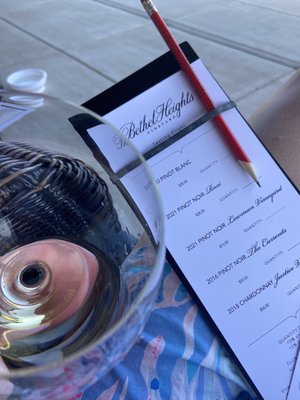 Bethel Heights
VINEYARD
PINOT BLANC
QUANTITY
2021 PINOT NOIR Rosé
QUANTITY
2021 PINOT NOIR Vineyard
QUANTITY
2016 PINOT NOIR The Currents
QUANTITY
2018 CHARDONNAY Justice
QUANTITY
QUANTITY